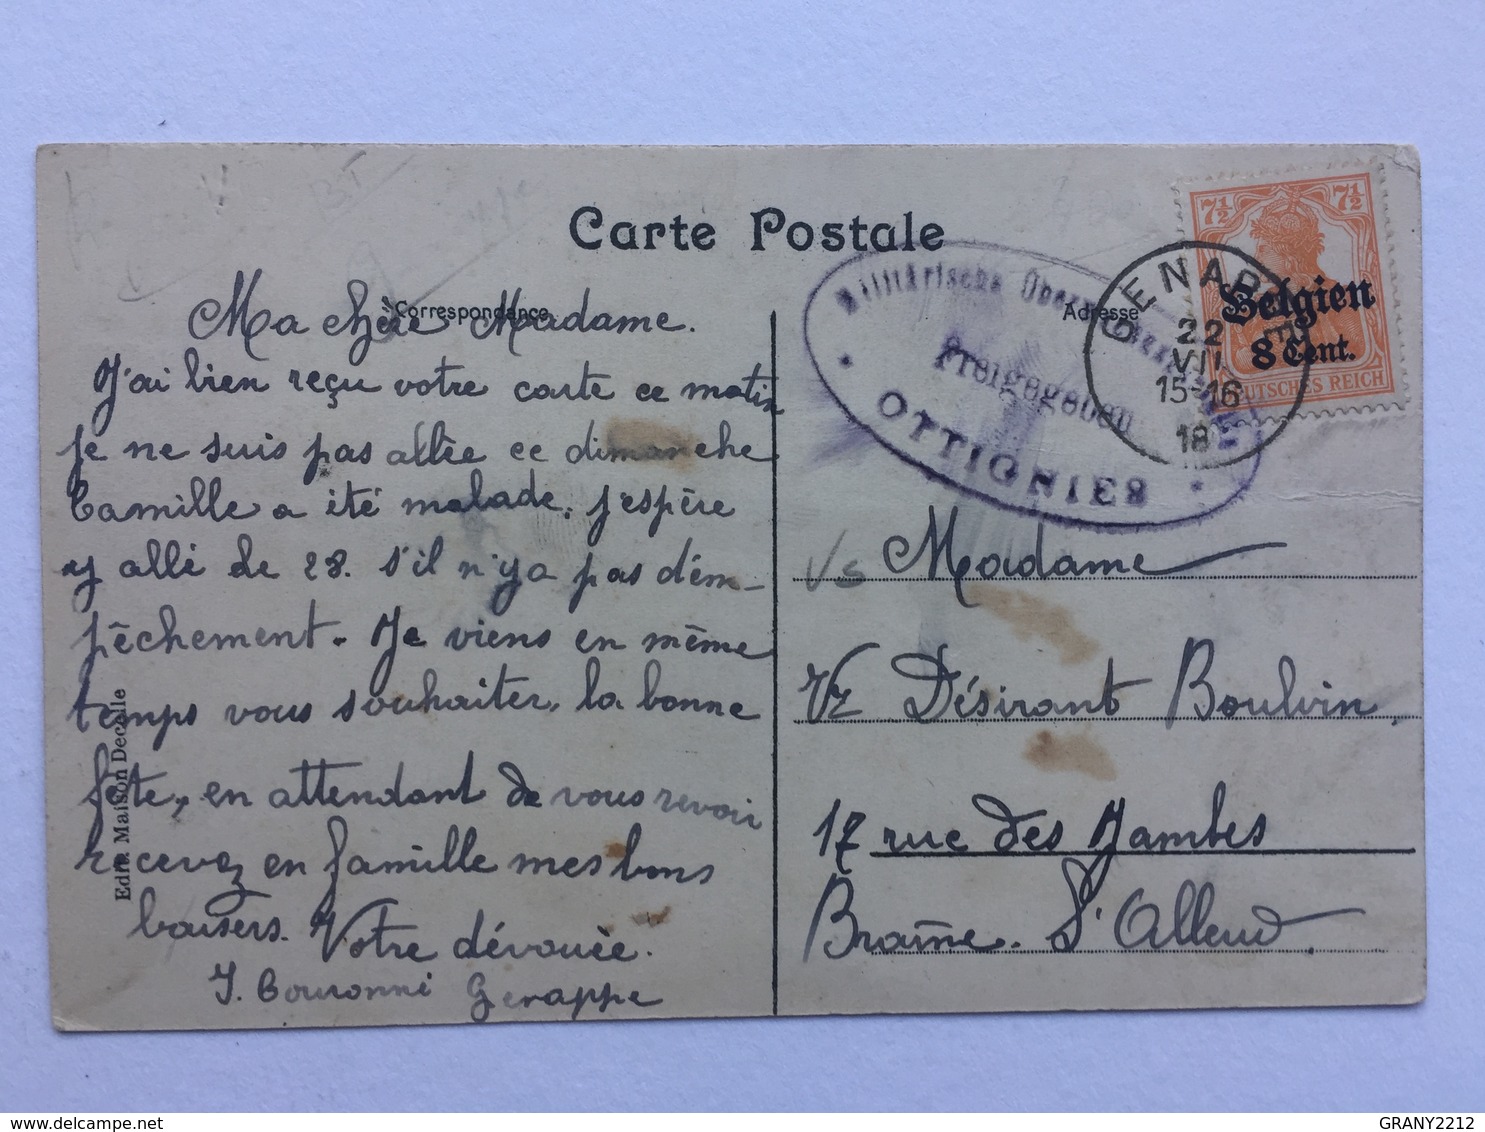 Carte Postale
Correspondance
Adresse
Ma chère Madame.
J'ai bien reçu votre carte ce matin
je ne suis pas allée ce dimanche
Camille a été malade. j'espère
y allé de 28. s'il n'ya pas d'em-
pêchement. Je viens en même
temps vous souhaiter, la bonne
fête, en attendant de vous revoir
recevez en famille mes bons
baisers. Votre dévouée.
J. Couronné Genappe
Edit. Maison Decelle
Militärische
Freigegeben
OTTIGNIES
GENAPPE
22
VII
15-16
18
7½ 7½
Belgien
8 Cent.
DEUTSCHES REICH
Vs Madame
Vz Désirant Boulvin
17 rue des Jambes
Braine. L'Alleud.
delcampe.net
GRANY2212